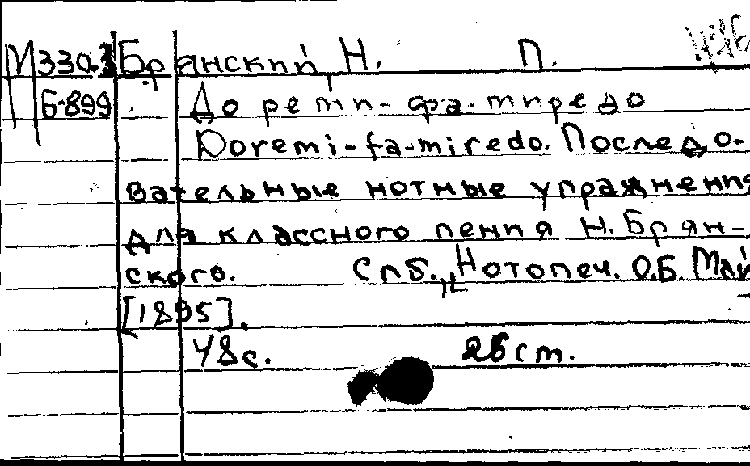 М330-3 Брянский, Н. П.
Б-899 До реми-фа-миредо
Doremi-fa-miredo. Последо-
вательные нотные упражнения
для классного пения Н. Брян-
ского. Спб., Нотопеч. О.Б. Май
[1895].
48с. 26 cm.